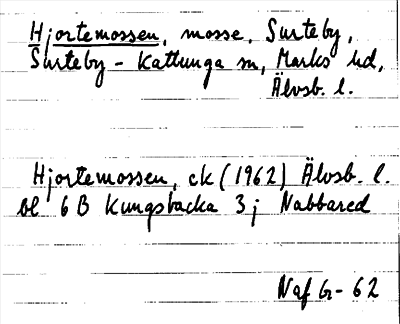 Hjortemossen, mosse, Surteby,
Surteby - Kattunga sn, Marks hd,
Älvsb. l.
Hjortemossen, ek (1962) Älvsb. l.
bl 6 B Kungsbacka 3 j Nabbared
Naf G - 62